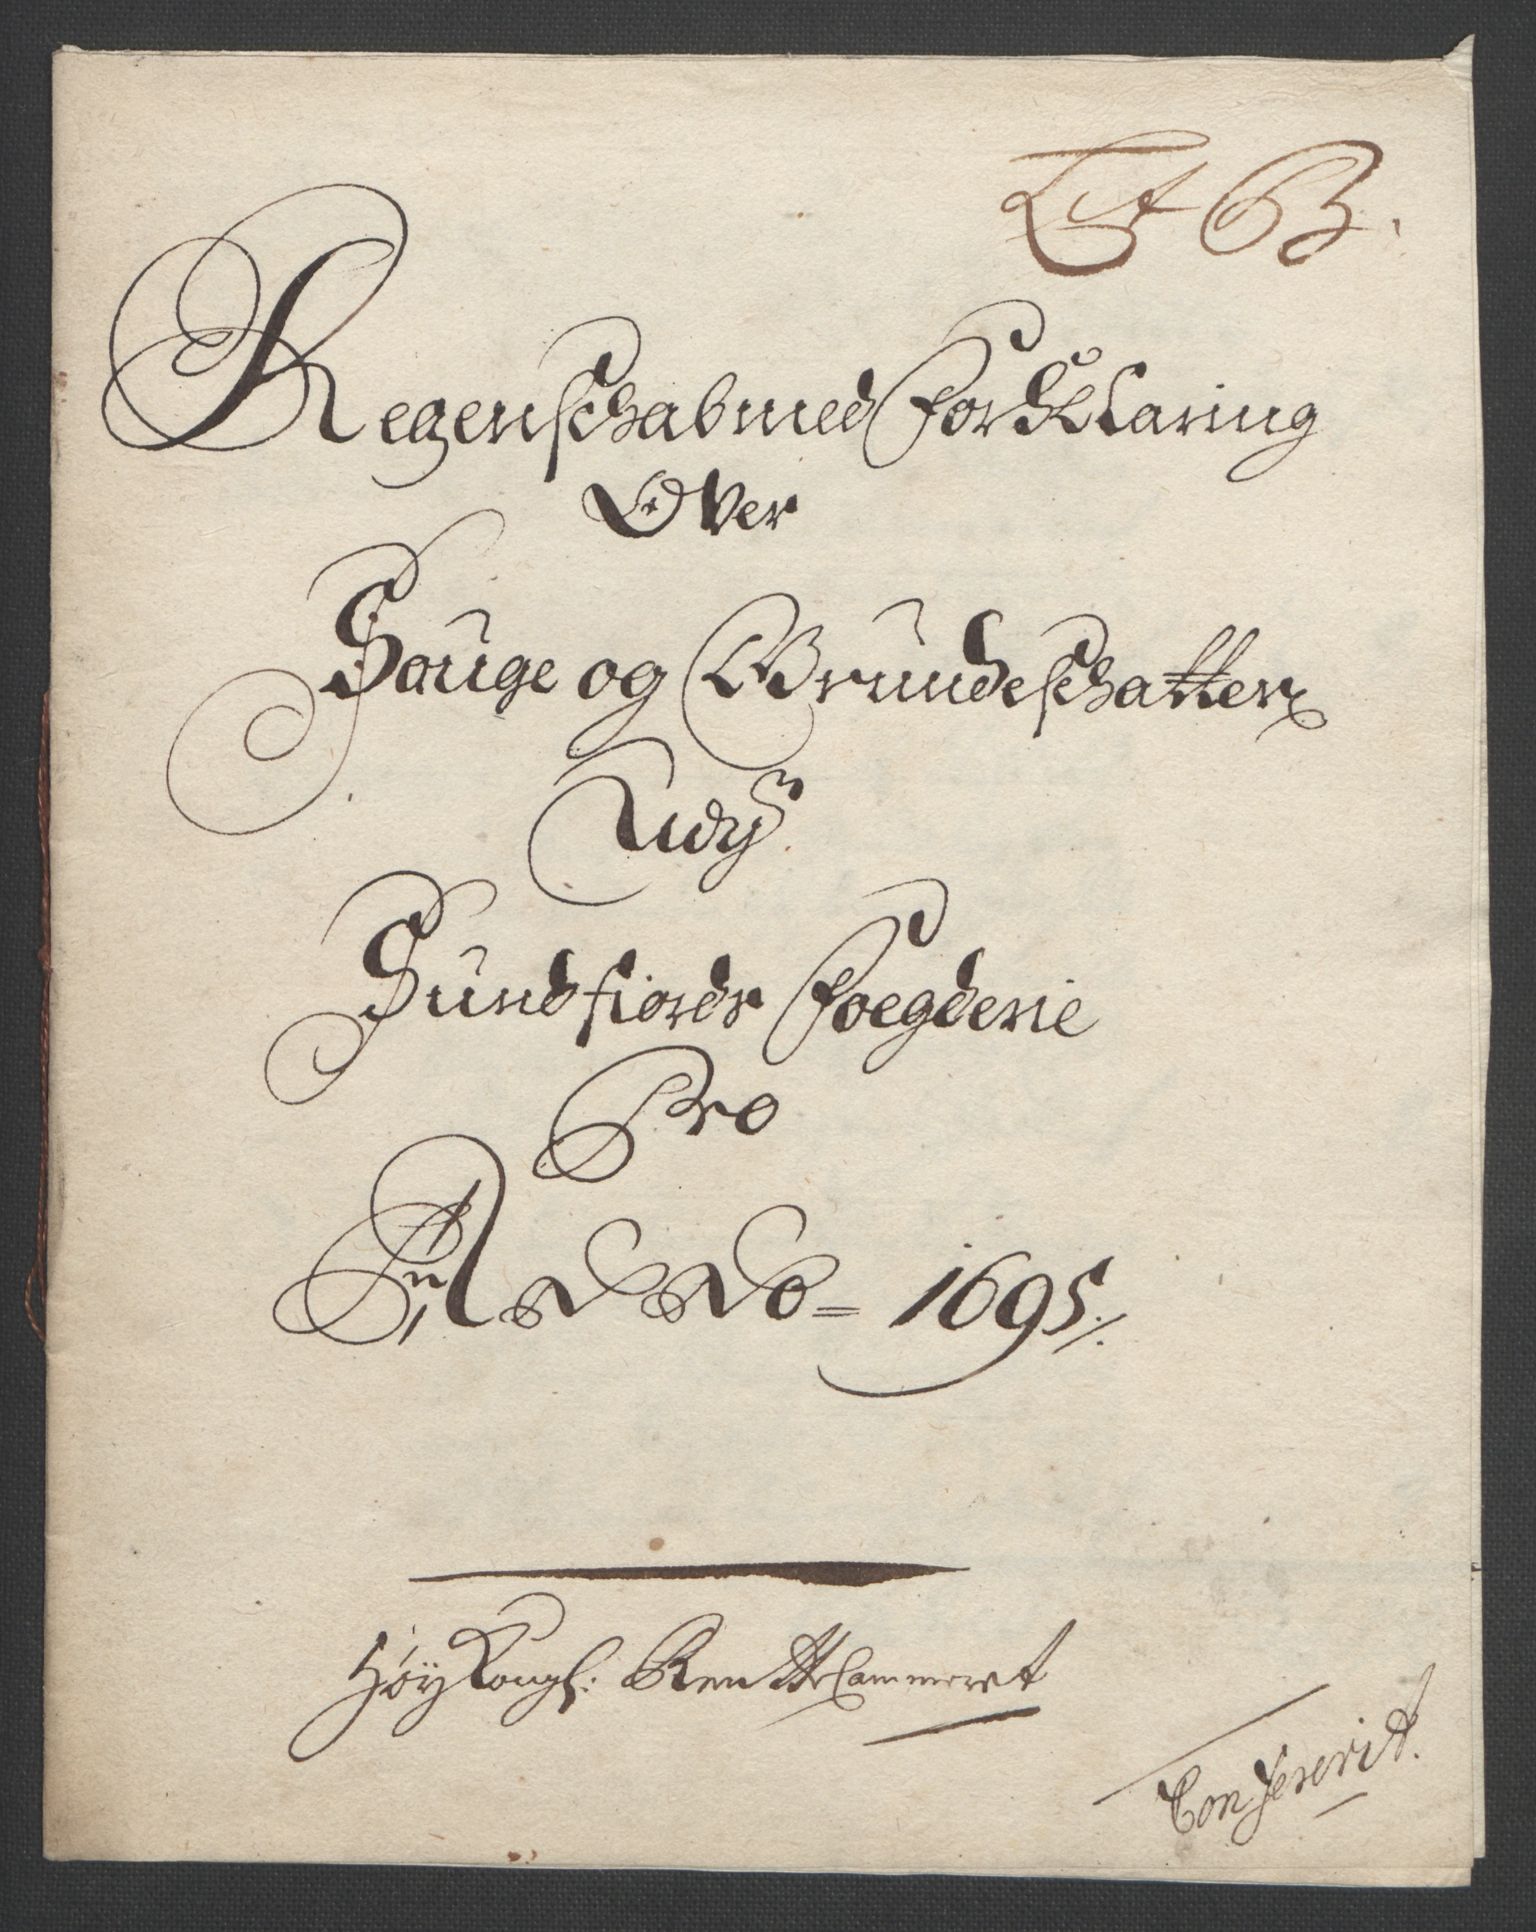 Lit B.
Regenschab med Forklaring
Over
Souge og Grundeschatter
Udj
Sundfiords Foegderie
Pro
Anno 1695.
Höy Kongl: Rentte Cammeret
Confererit.